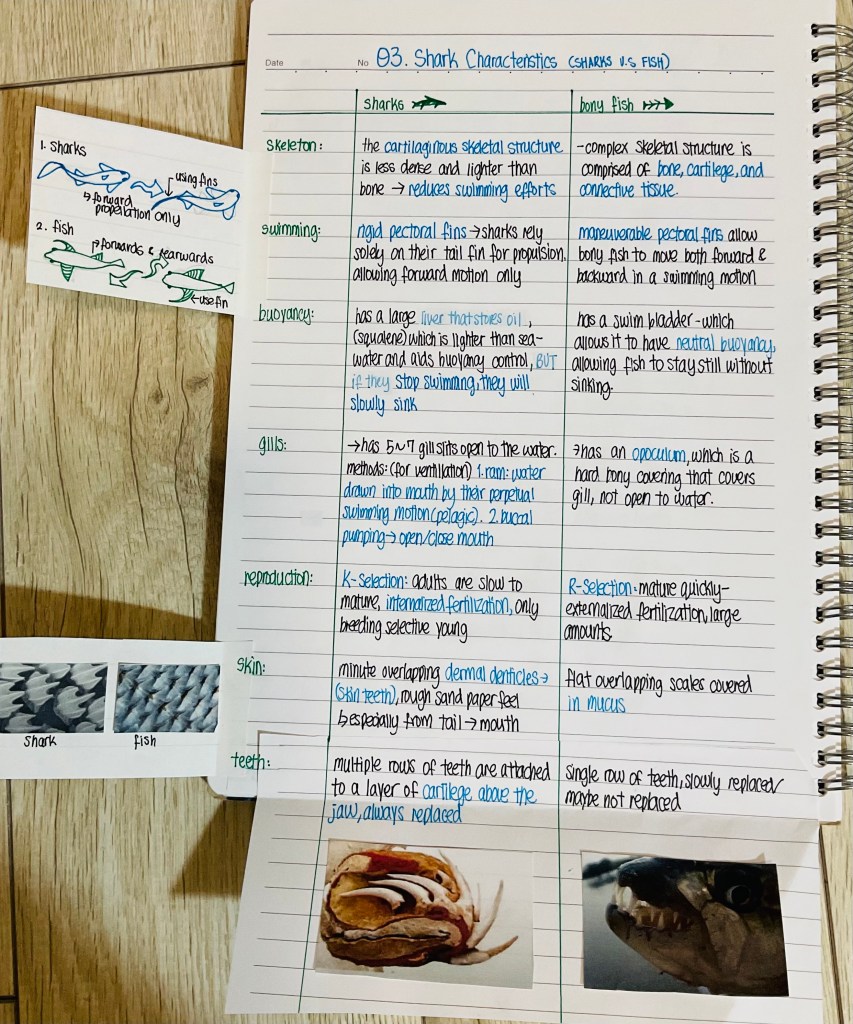 Date
No 03. Shark Characteristics (SHARKS V.S FISH)
sharks
bony fish
skeleton:
the cartilaginous skeletal structure
is less dense and lighter than
bone → reduces swimming efforts
-complex skeletal structure is
comprised of bone, cartilege, and
connective tissue.
swimming:
rigid pectoral fins → sharks rely
solely on their tail fin for propulsion,
allowing forward motion only
maneuverable pectoral fins allow
bony fish to move both forward &
backward in a swimming motion
buoyancy:
has a large liver that stores oil,
(squalene) which is lighter than sea-
water and aids buoyancy control, BUT
if they stop swimming, they will
slowly sink
has a swim bladder - which
allows it to have neutral buoyancy,
allowing fish to stay still without
sinking.
gills:
→has 5~7 gill slits open to the water.
methods: (for ventilation) 1. ram: water
drawn into mouth by their perpetual
swimming motion (pelagic). 2. buccal
pumping → open/close mouth
→has an opoculum, which is a
hard bony covering that covers
gill, not open to water.
reproduction:
K-Selection: adults are slow to
mature, internalized fertilization, only
breeding selective young
R-Selection: mature quickly-
externalized fertilization, large
amounts
skin:
minute overlapping dermal denticles→
(skin teeth), rough sand paper feel
↳especially from tail → mouth
flat overlapping scales covered
in mucus
teeth:
multiple rows of teeth are attached
to a layer of cartilege above the
jaw, always replaced
single row of teeth, slowly replaced/
maybe not replaced
1. sharks
using fins
↳ forward
propellation only
2. fish
↱forwards & rearwards
←use fin
shark
fish